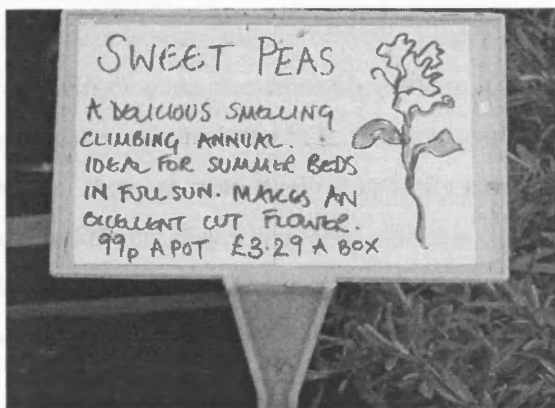 SWEET PEAS
A DELICIOUS SMELLING
CLIMBING ANNUAL.
IDEAL FOR SUMMER BEDS
IN FULL SUN. MAKES AN
EXCELLENT CUT FLOWER.
99p A POT £3.29 A BOX